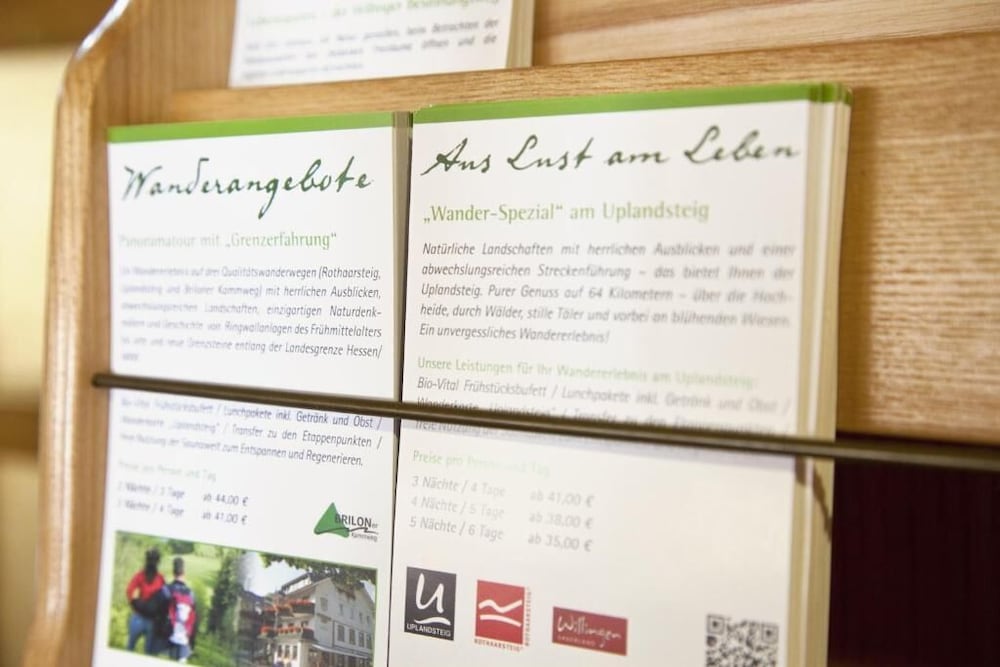 Wanderangebote
Panoramatour mit „Grenzerfahrung“
Ein Wandererlebnis auf drei Qualitätswanderwegen (Rothaarsteig,
Uplandsteig und Briloner Kammweg) mit herrlichen Ausblicken,
abwechslungsreichen Landschaften, einzigartigen Naturdenk-
mälern und Geschichte von Ringwallanlagen des Frühmittelalters
bis alte und neue Grenzsteine entlang der Landesgrenze Hessen/
Bio-Vital Frühstücksbuffett / Lunchpakete inkl. Getränk und Obst /
Wanderkarte „Uplandsteig“ / Transfer zu den Etappenpunkten /
freie Nutzung der Saunawelt zum Entspannen und Regenerieren.
Preise pro Person und Tag
2 Nächte / 3 Tage ab 44,00 €
3 Nächte / 4 Tage ab 41,00 €
BRILONer
Kammweg
Aus Lust am Leben
„Wander-Spezial“ am Uplandsteig
Natürliche Landschaften mit herrlichen Ausblicken und einer
abwechslungsreichen Streckenführung – das bietet Ihnen der
Uplandsteig. Purer Genuss auf 64 Kilometern – über die Hoch-
heide, durch Wälder, stille Täler und vorbei an blühenden Wiesen.
Ein unvergessliches Wandererlebnis!
Unsere Leistungen für Ihr Wandererlebnis am Uplandsteig:
Bio-Vital Frühstücksbuffett / Lunchpakete inkl. Getränk und Obst /
Wanderkarte „Uplandsteig“ / Transfer zu den Etappenpunkten /
freie Nutzung der
Preise pro Person und Tag
3 Nächte / 4 Tage ab 41,00 €
4 Nächte / 5 Tage ab 38,00 €
5 Nächte / 6 Tage ab 35,00 €
UPLANDSTEIG
ROTHAARSTEIG
ROTHAARSTEIG
Willingen
SAUERLAND